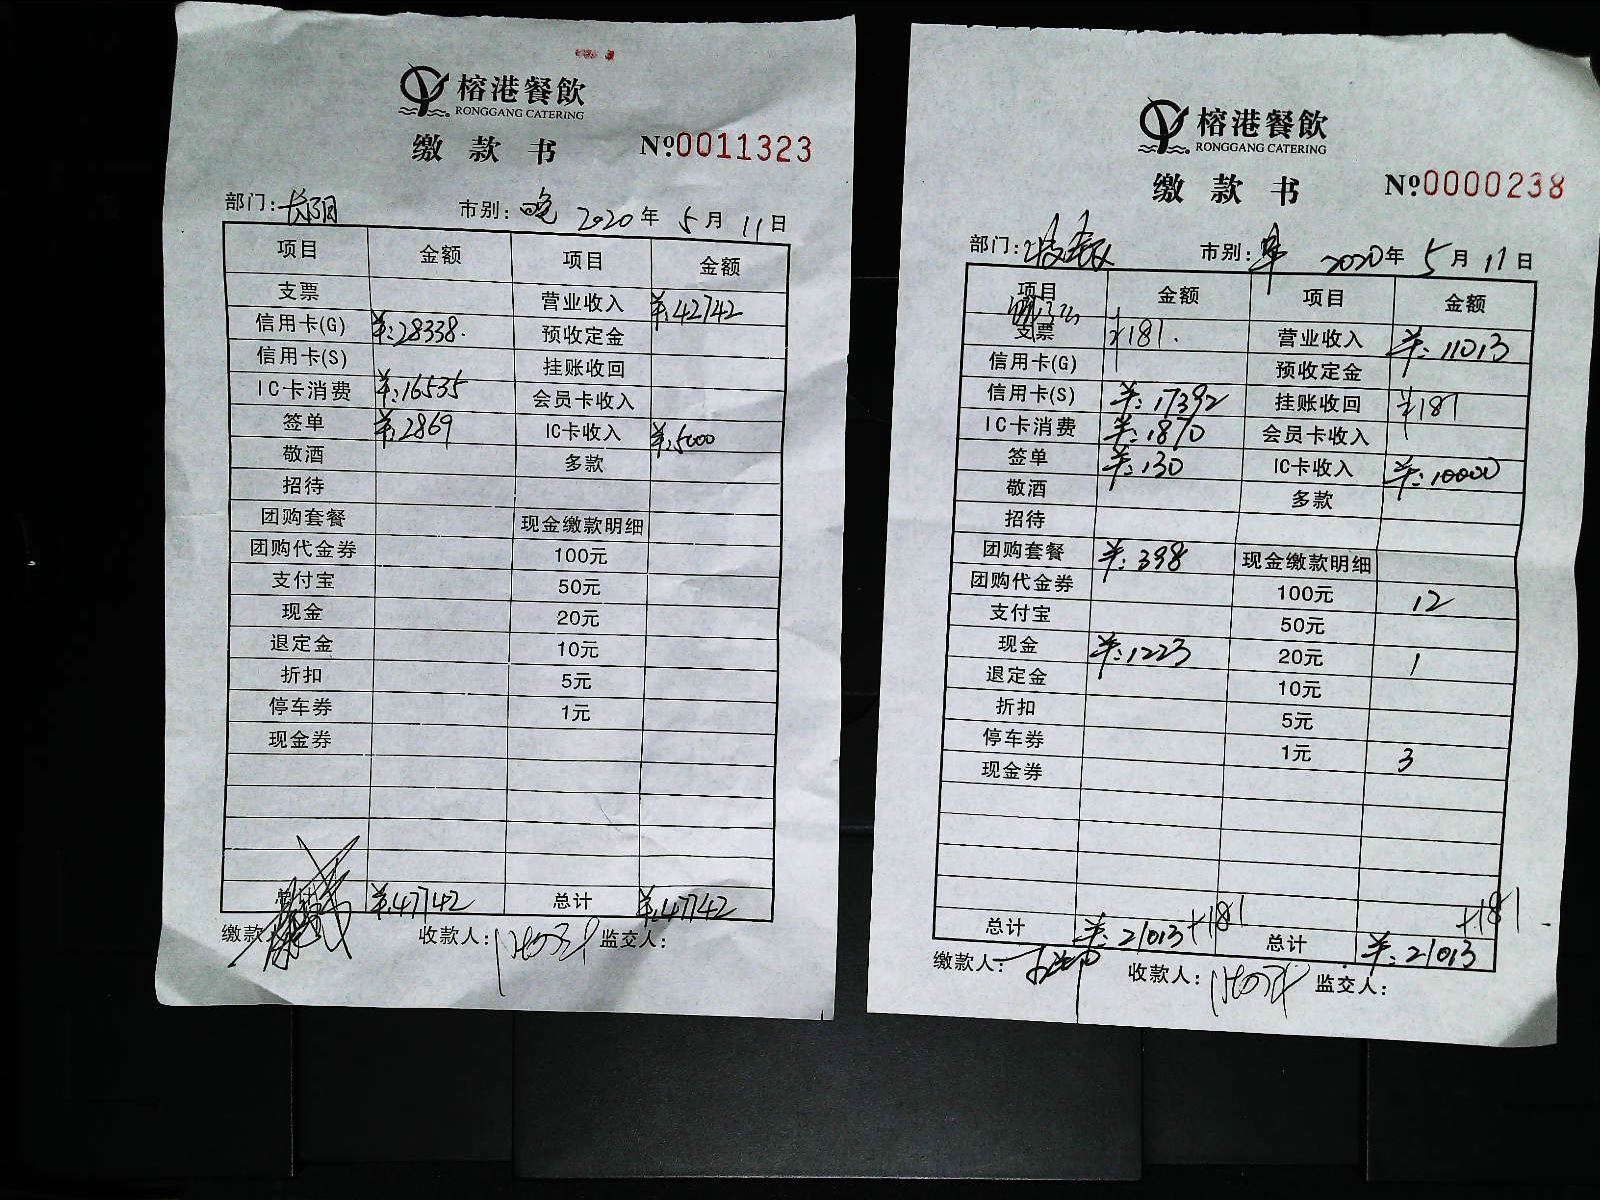 榕港餐飲
RONGGANG CATERING
缴款书 Nº0011323
部门: 长阳 市别: 晚 2020年 5月 11日
项目 金额 项目 金额
支票 营业收入 ¥:42742
信用卡(G) ¥:28338. 预收定金
信用卡(S) 挂账收回
IC卡消费 ¥:16535 会员卡收入
签单 ¥:2869 IC卡收入 ¥:5000
敬酒 多款
招待
团购套餐 现金缴款明细
团购代金券 100元
支付宝 50元
现金 20元
退定金 10元
折扣 5元
停车券 1元
现金券
总计 ¥:47742 总计 ¥:47742
缴款人: 收款人: 监交人:
榕港餐飲
RONGGANG CATERING
缴款书 Nº0000238
部门: 市别: 早 2020年 5月 11日
项目 金额 项目 金额
支票 ¥181. 营业收入 ¥:11013
信用卡(G) 预收定金
信用卡(S) ¥:17392 挂账收回 ¥181
IC卡消费 ¥:1870 会员卡收入
签单 ¥:130 IC卡收入 ¥:10000
敬酒 多款
招待
团购套餐 ¥:398 现金缴款明细
团购代金券 100元 12
支付宝 50元
现金 ¥:1223 20元 1
退定金 10元
折扣 5元
停车券 1元 3
现金券
总计 ¥:21013+181 总计 ¥:21013 +181
缴款人: 收款人: 监交人: